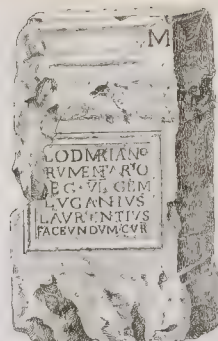 M
LODMRIANO
RVMENTARIO
EG·VII GEM
LVCANIVS
LAVRENTIVS
FACEVNDVM·CVR